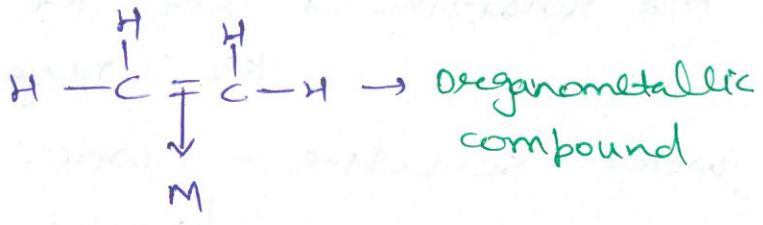 H H
H — C = C — H → Organometallic
compound
↓
M